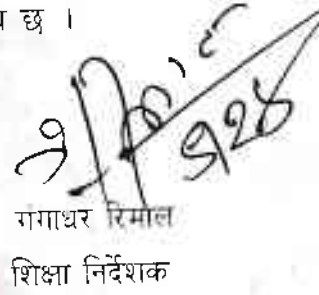 छ ।
गंगाधर रिमाल
शिक्षा निर्देशक